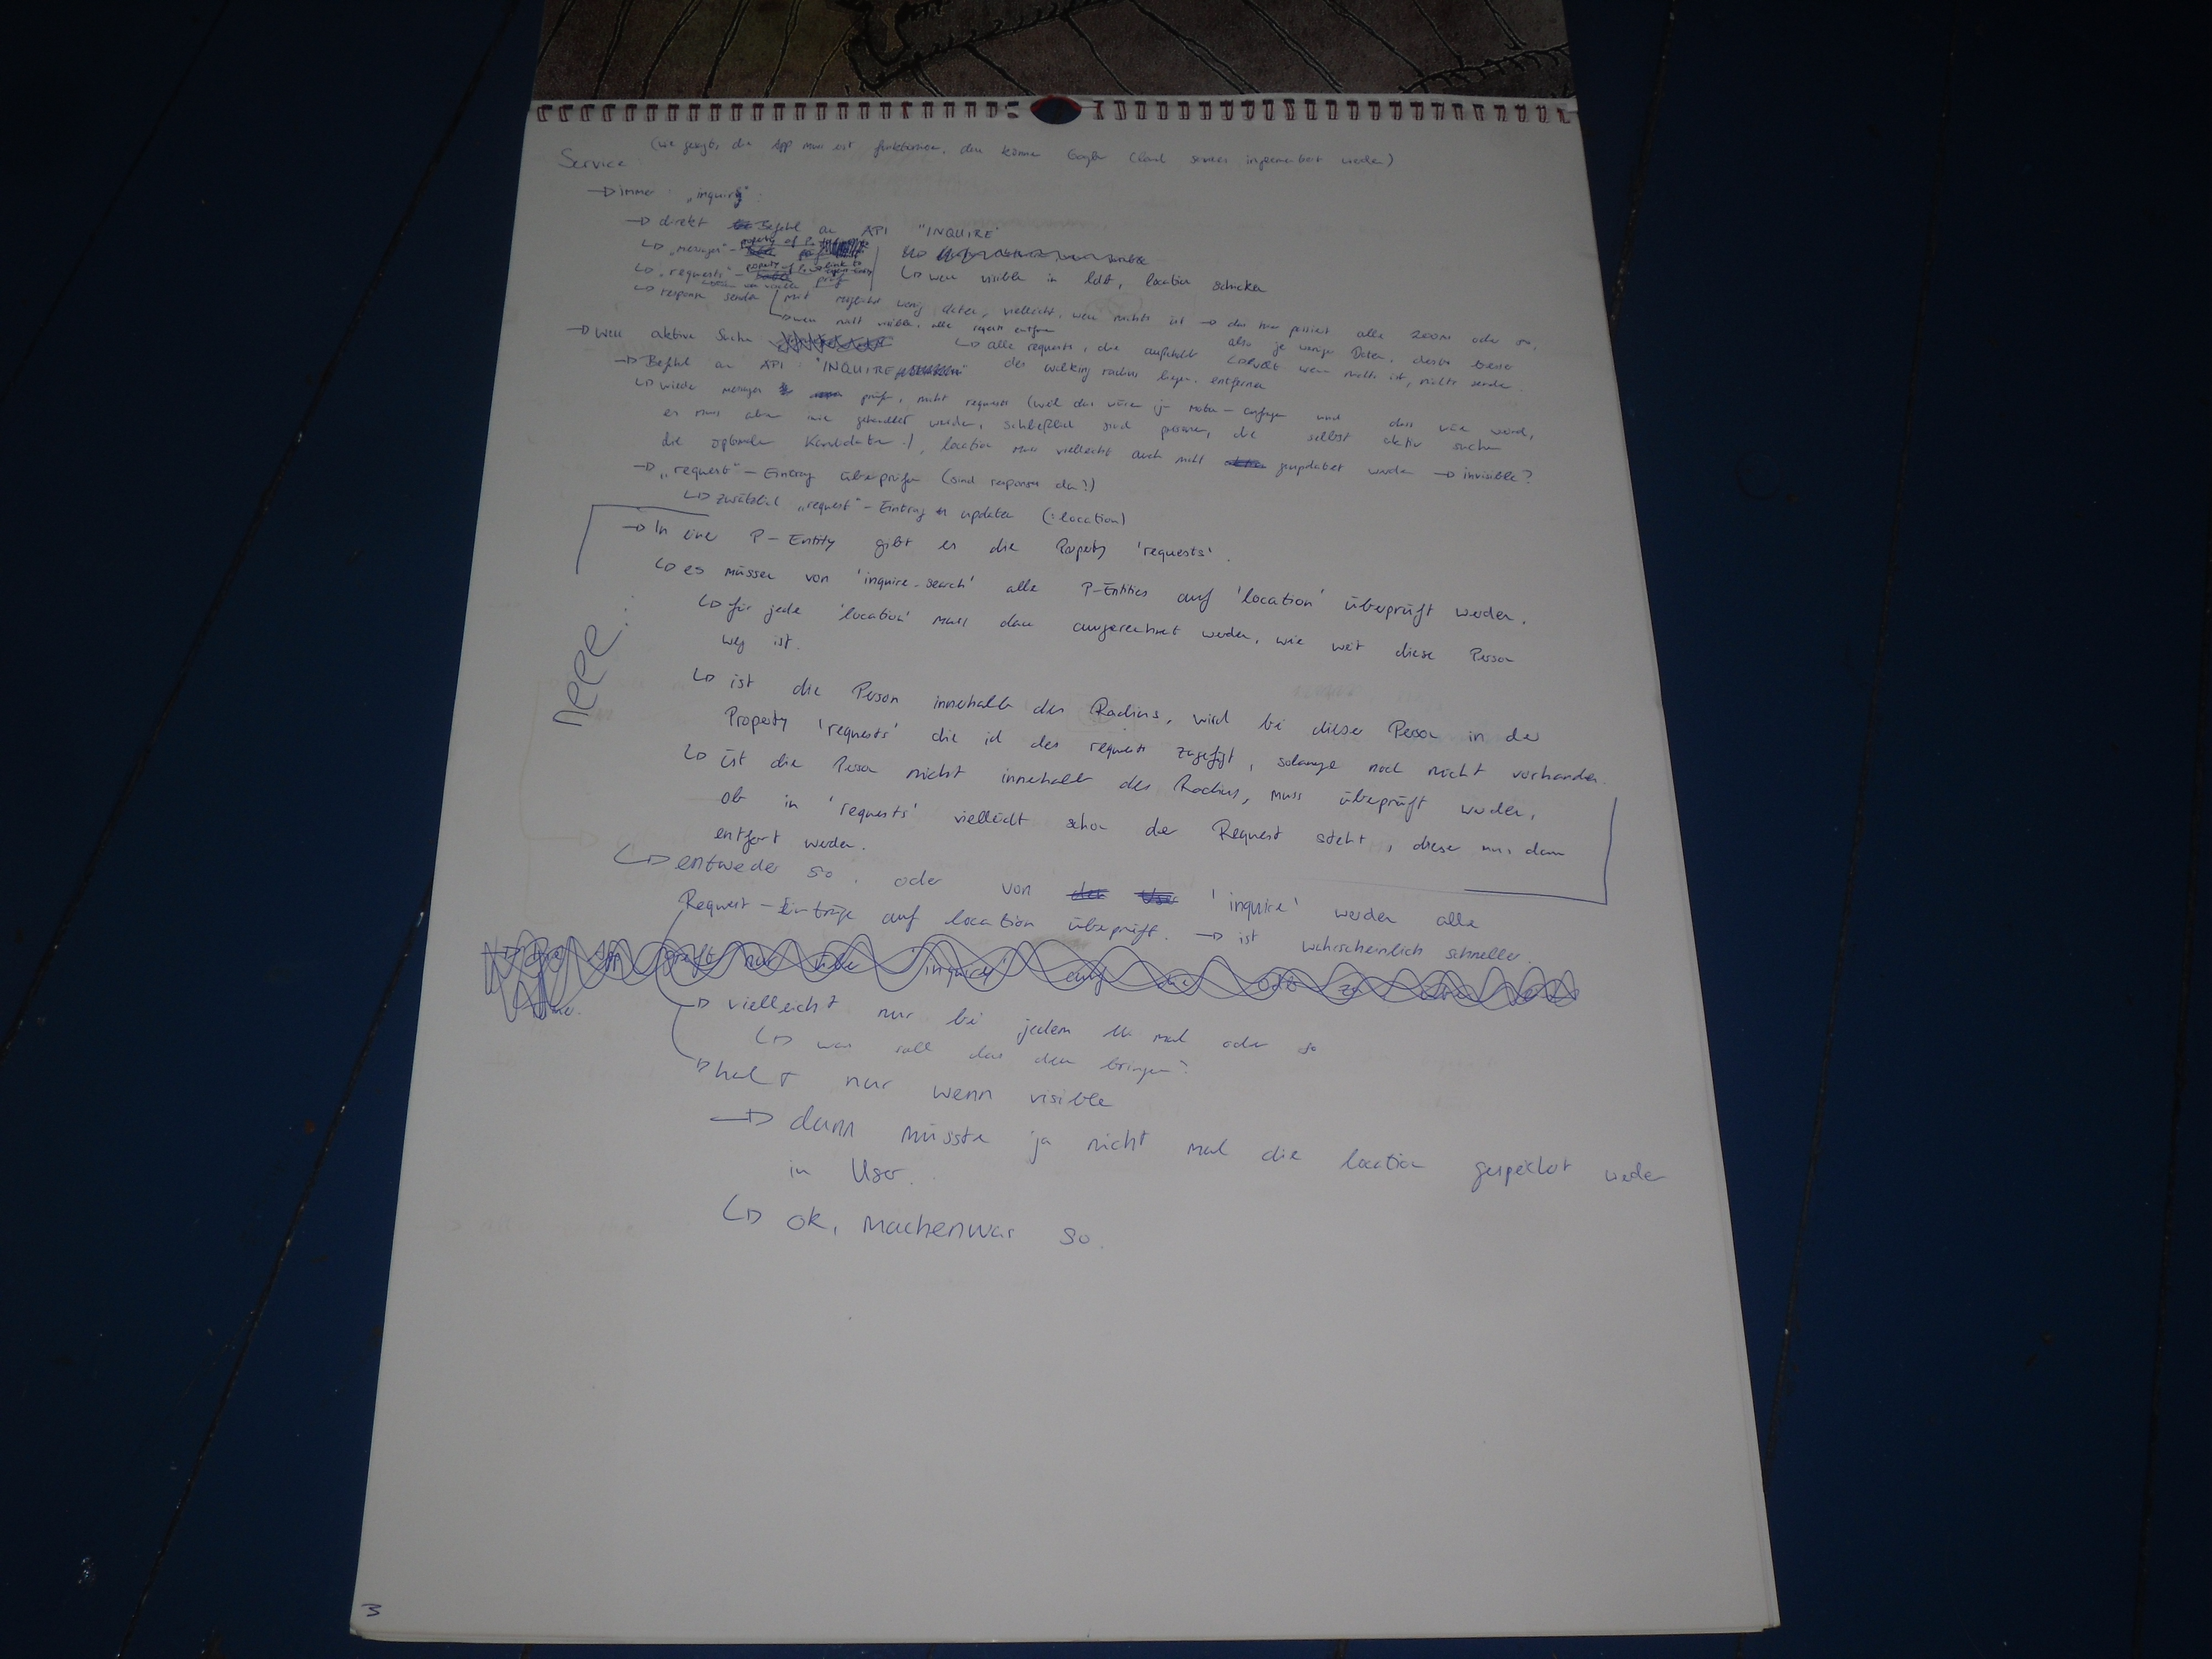 (wie gesagt, die App muss erst funktionieren, dann können Google Cloud services implementiert werden)
Service
→ immer: „inquiry“:
→ direkt Befehl an API "INQUIRE"
↳ „messages“ – property of P
↳ „requests“ – property of P prüf
↳ wenn visible in letzt, location schicken
↳ response senden mit möglichst wenig daten, vielleicht, wenn nichts ist → das muss passiert alle 200m oder so,
also je weniger Daten, desto besser
↳ wenn nicht visible, alle requests entfernen
↳ vielleicht wenn nichts ist, nichts senden.
→ wenn aktive Suche
↳ alle requests, die außerhalb
des walking radius liegen, entfernen
→ Befehl an API: "INQUIRE
↳ wieder messages prüfen, nicht requests (weil das wäre ja
es muss aber nie gehandelt werden, schließlich sind personen, die selbst aktiv suchen
die optimalen Kandidaten!), location muss vielleicht auch nicht geupdatet werden → invisible?
→ „request“ – Eintrag überprüfen (sind responses da?)
↳ zusätzlich „request“ – Eintrag updaten (:location)
→ In einer P-Entity gibt es die Property 'requests'.
↳ es müssen von 'inquire_search' alle P-Entities auf 'location' überprüft werden.
↳ für jede 'location' muss dann ausgerechnet werden, wie weit diese Person
weg ist.
neee:
↳ ist die Person innerhalb des Radius, wird bei dieser Person in der
Property 'requests' die id des requests zugefügt, solange noch nicht vorhanden.
↳ ist die Person nicht innerhalb des Radius, muss überprüft werden,
ob in 'requests' vielleicht schon der Request steht, dieser muss dann
entfernt werden.
↳ entweder so, oder von 'inquire' werden alle
Request-Einträge auf location überprüft. → ist wahrscheinlich schneller.
→ vielleicht nur bei jedem mal oder so
↳ was soll das denn bringen?
→ halt nur wenn visible
→ dann müsste ja nicht mal die location gespeichert werden
in User.
↳ ok, machenwar so.
3